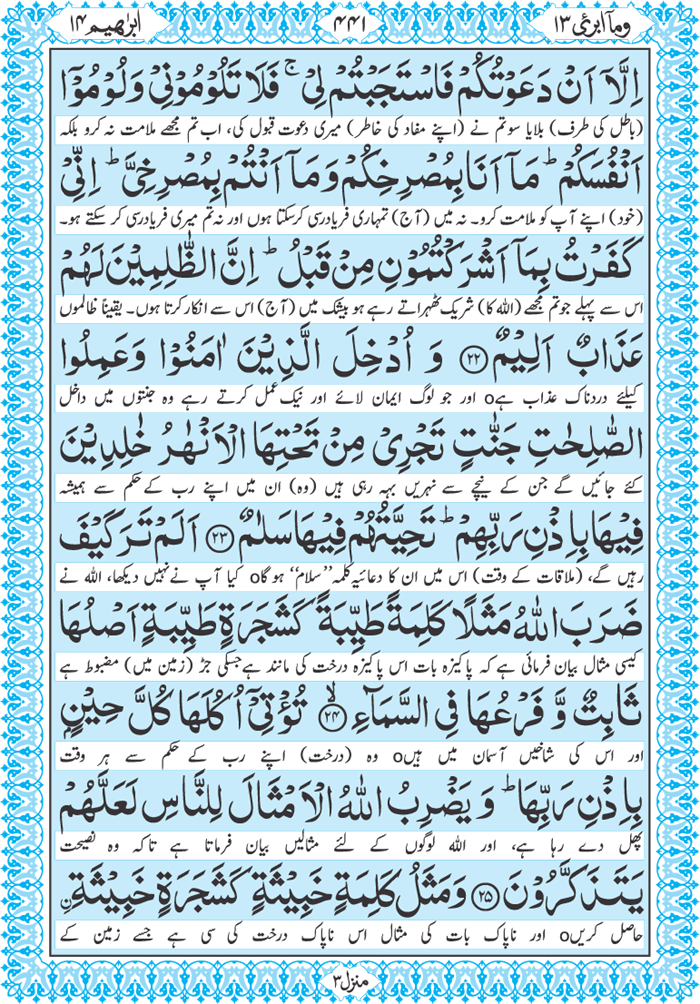 وما ابرئ ۱۳
۴۴۱
ابرٰهيم ۱۴
اِلَّاۤ اَنْ دَعَوْتُكُمْ فَاسْتَجَبْتُمْ لِيْ ۚ فَلَا تَلُوْمُوْنِيْ وَلُوْمُوْۤا
(باطل کی طرف) بلایا سو تم نے (اپنے مفاد کی خاطر) میری دعوت قبول کی، اب تم مجھے ملامت نہ کرو بلکہ
اَنْفُسَكُمْ ؕ مَاۤ اَنَا بِمُصْرِخِكُمْ وَ مَاۤ اَنْتُمْ بِمُصْرِخِيَّ ؕ اِنِّيْ
(خود) اپنے آپ کو ملامت کرو۔ نہ میں (آج) تمہاری فریاد رسی کرسکتا ہوں اور نہ تم میری فریاد رسی کر سکتے ہو۔
كَفَرْتُ بِمَاۤ اَشْرَكْتُمُوْنِ مِنْ قَبْلُ ؕ اِنَّ الظّٰلِمِيْنَ لَهُمْ
اس سے پہلے جو تم مجھے (اللہ کا) شریک ٹھہراتے رہے ہو بیشک میں (آج) اس سے انکار کرتا ہوں۔ یقیناً ظالموں
عَذَابٌ اَلِيْمٌ ۝۲۲ وَ اُدْخِلَ الَّذِيْنَ اٰمَنُوْا وَعَمِلُوا
کیلئے دردناک عذاب ہے o اور جو لوگ ایمان لائے اور نیک عمل کرتے رہے وہ جنتوں میں داخل
الصّٰلِحٰتِ جَنّٰتٍ تَجْرِيْ مِنْ تَحْتِهَا الْاَنْهٰرُ خٰلِدِيْنَ
کئے جائیں گے جن کے نیچے سے نہریں بہہ رہی ہیں (وہ) ان میں اپنے رب کے حکم سے ہمیشہ
فِيْهَا بِاِذْنِ رَبِّهِمْ ؕ تَحِيَّتُهُمْ فِيْهَا سَلٰمٌ ۝۲۳ اَلَمْ تَرَ كَيْفَ
رہیں گے، (ملاقات کے وقت) اس میں ان کا دعائیہ کلمہ ’’سلام‘‘ ہو گا o کیا آپ نے نہیں دیکھا، اللہ نے
ضَرَبَ اللّٰهُ مَثَلًا كَلِمَةً طَيِّبَةً كَشَجَرَةٍ طَيِّبَةٍ اَصْلُهَا
کیسی مثال بیان فرمائی ہے کہ پاکیزہ بات اس پاکیزہ درخت کی مانند ہے جسکی جڑ (زمین میں) مضبوط ہے
ثَابِتٌ وَّ فَرْعُهَا فِي السَّمَآءِ ۙ۝۲۴ تُؤْتِيْۤ اُكُلَهَا كُلَّ حِيْنٍۭ
اور اس کی شاخیں آسمان میں ہیں o وہ (درخت) اپنے رب کے حکم سے ہر وقت
بِاِذْنِ رَبِّهَا ؕ وَ يَضْرِبُ اللّٰهُ الْاَمْثَالَ لِلنَّاسِ لَعَلَّهُمْ
پھل دے رہا ہے، اور اللہ لوگوں کے لئے مثالیں بیان فرماتا ہے تاکہ وہ نصیحت
يَتَذَكَّرُوْنَ ۝۲۵ وَمَثَلُ كَلِمَةٍ خَبِيْثَةٍ كَشَجَرَةٍ خَبِيْثَةِ ن
حاصل کریں o اور ناپاک بات کی مثال اس ناپاک درخت کی سی ہے جسے زمین کے
منزل ۳